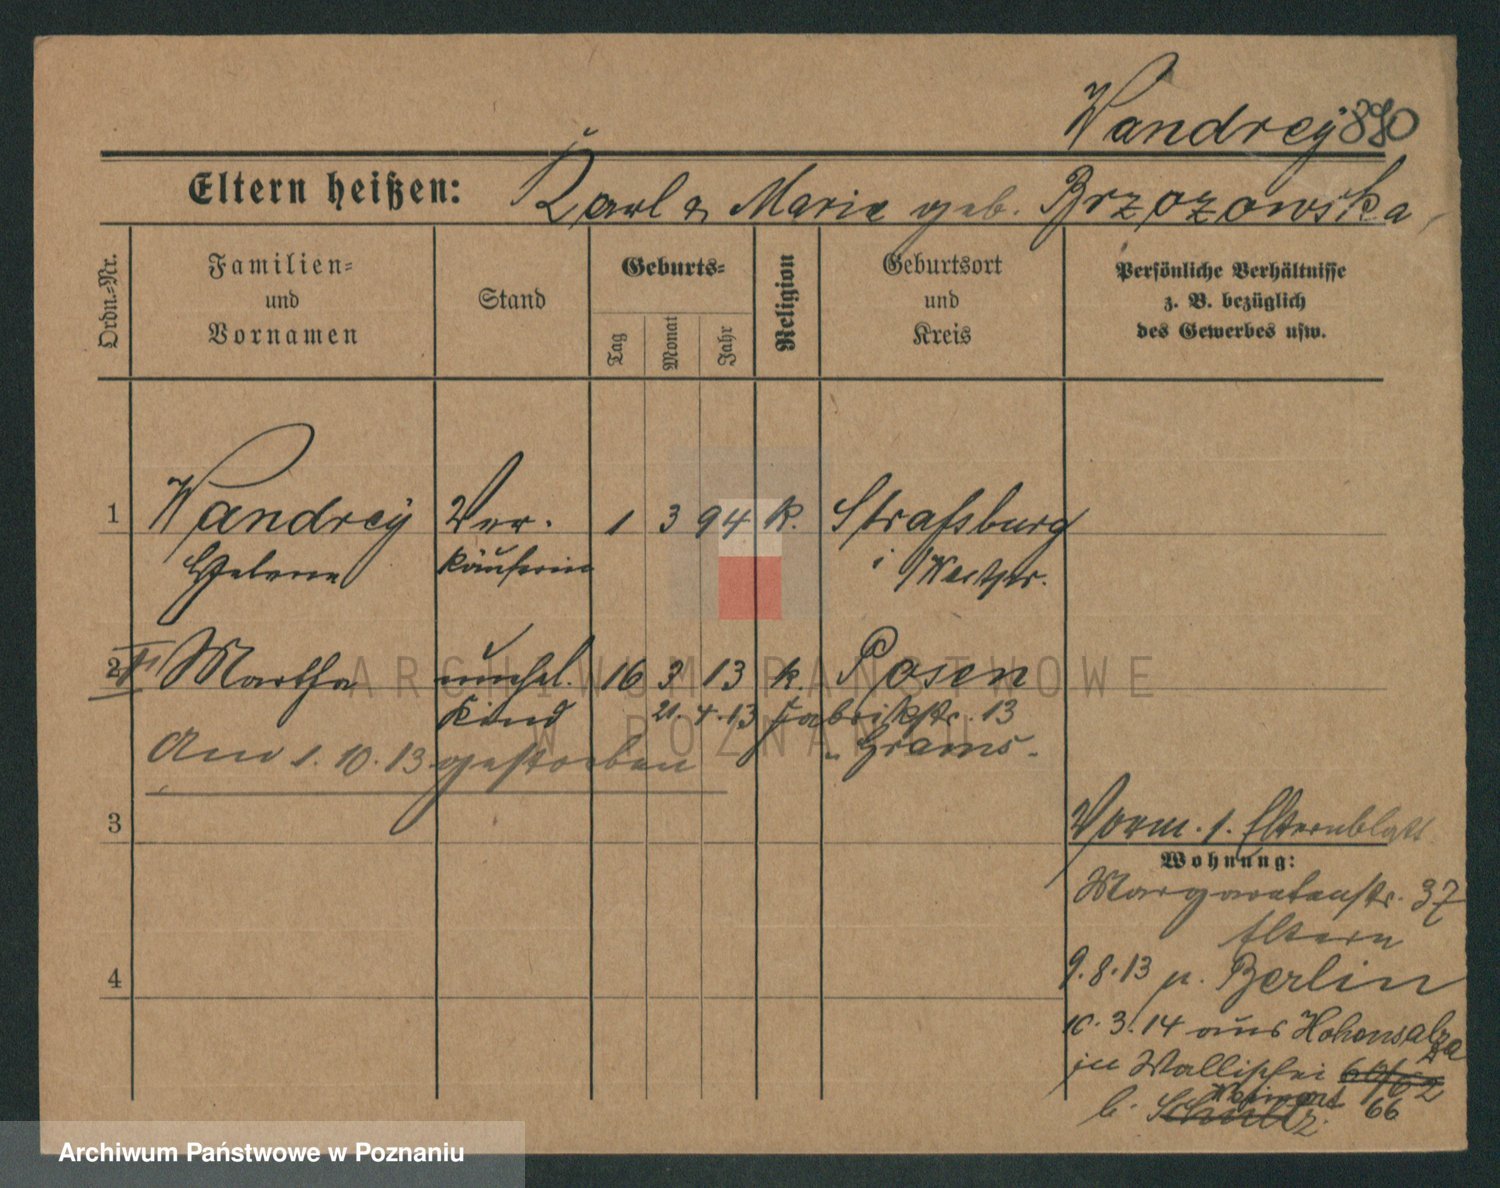 Wandrey 890
Eltern heißen: Karl & Marie geb. Brzozowska
Ordn.-Nr.
Familien-
und
Vornamen
Stand
Geburts-
Tag
Monat
Jahr
Religion
Geburtsort
und
Kreis
Persönliche Verhältnisse
z. B. bezüglich
des Gewerbes usw.
1 Wandrey Ver- 1 3 94 k. Straßburg
Helene käuferin i/Westpr.
2 Martha unehel. 16 3 13 k. Posen
Kind 21.4.13 Fabrikstr. 13
Am 1.10.13 gestorben
3
4
Vorm. s. Elternblatt
Wohnung:
Margaretenstr. 37
Eltern
9.8.13 n. Berlin
10.3.14 aus Hohensalza
in Wallischei 66
b. Schultz
ARCHIWUM PAŃSTWOWE
W POZNANIU
Archiwum Państwowe w Poznaniu